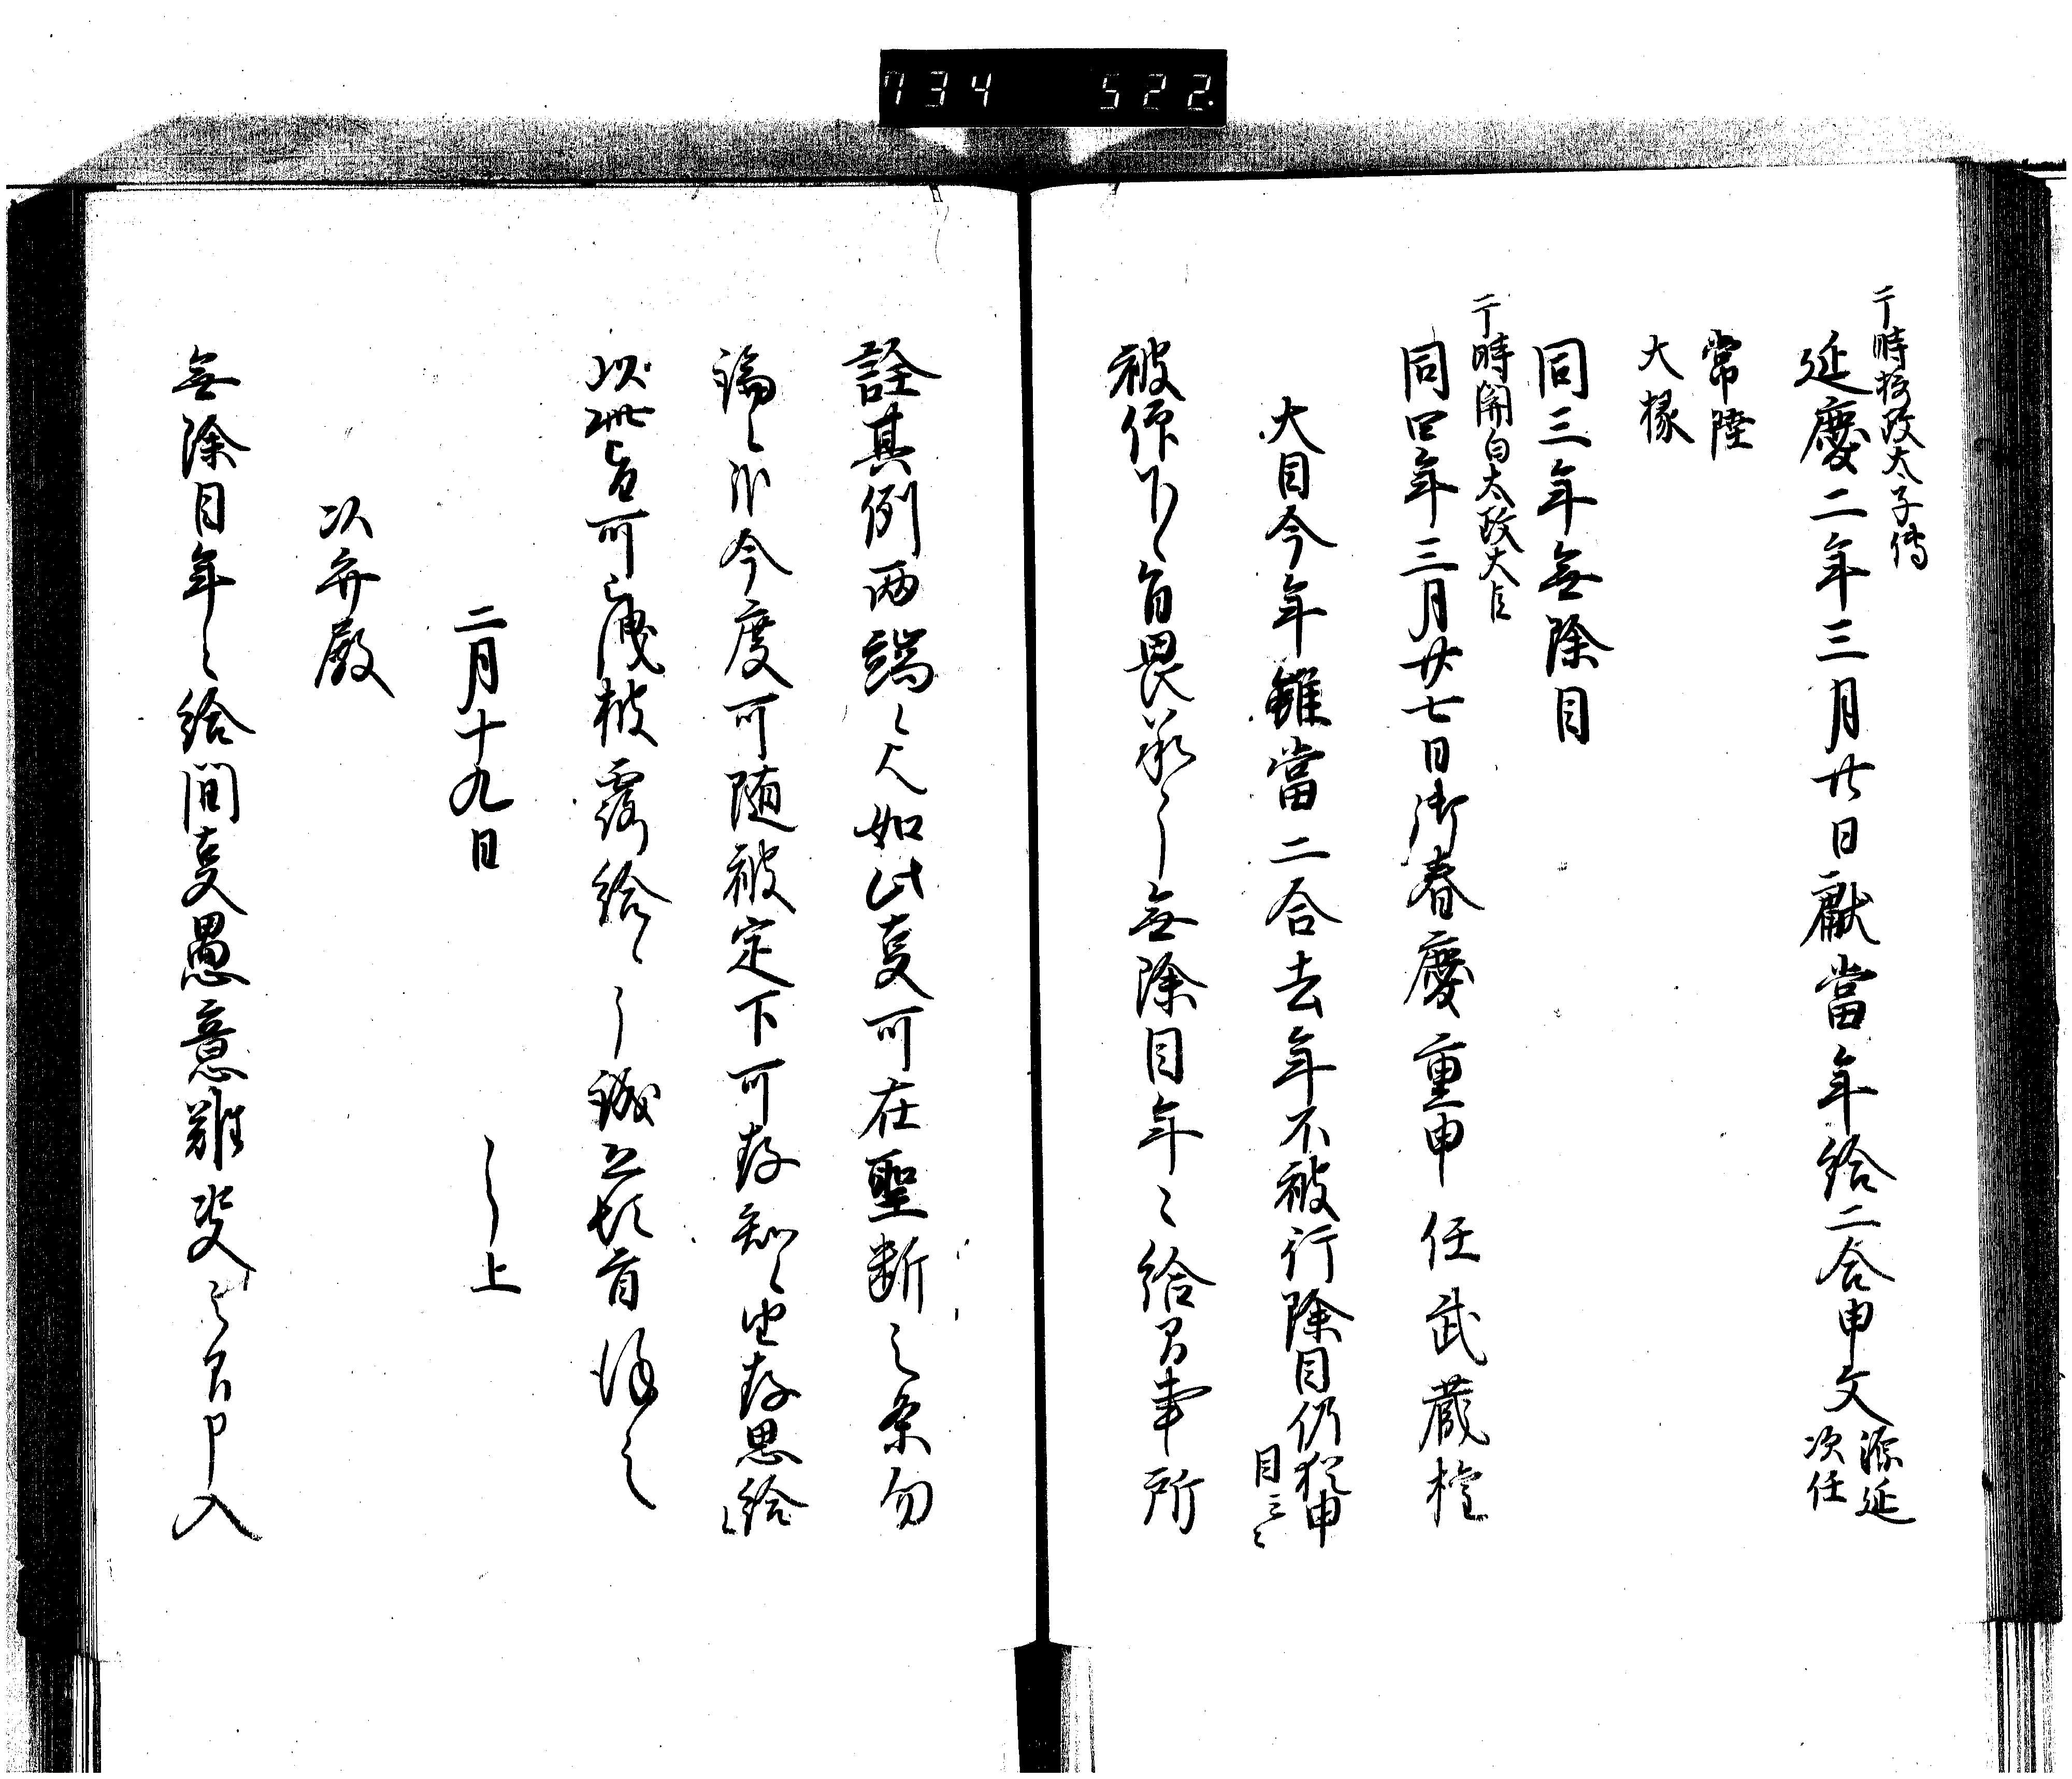 734 522
于時摂政太子傅
延慶二年三月廿日獻當年給二合申文源延
次任
常陸
大掾
同三年無除目
于時関白太政大臣
同四年三月廿七日御春慶重申任武蔵権
大目今年雖當二合去年不被行除目仍猶申
目云々
被仰下之旨畏承了無除目年々給間事所
詮其例両端之上如此事可在聖断之条勿
論候今度可随被定下可存知之由存思給
以此旨可令洩披露給之誠恐頓首謹言
二月十九日 上
次弁殿
無除目年々給間事愚意難決之間申入